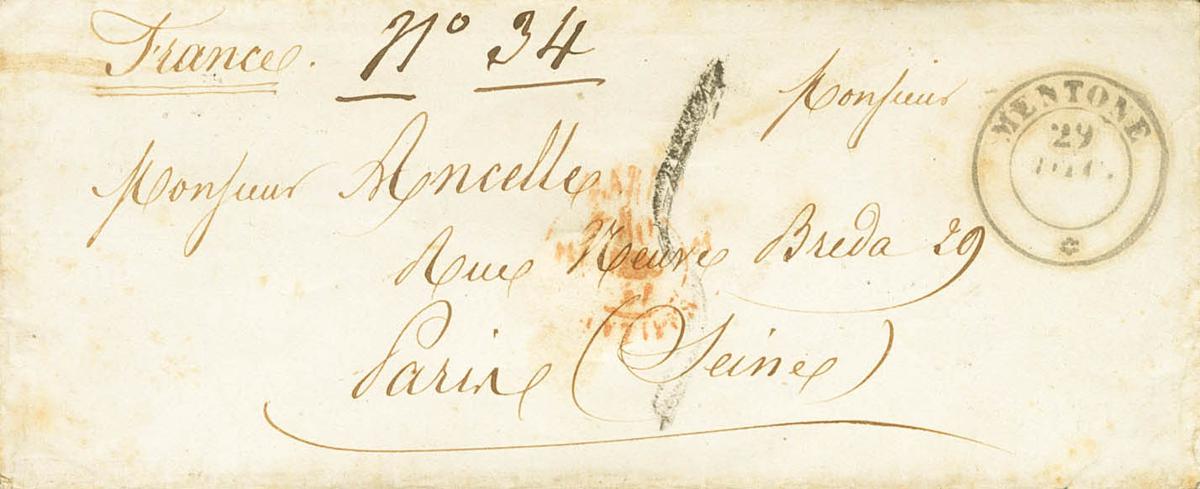 France. N° 34
Monsieur
MENTONE
29
Monsieur Ancelle
Rue Neuve Breda 29
Paris (Seine)